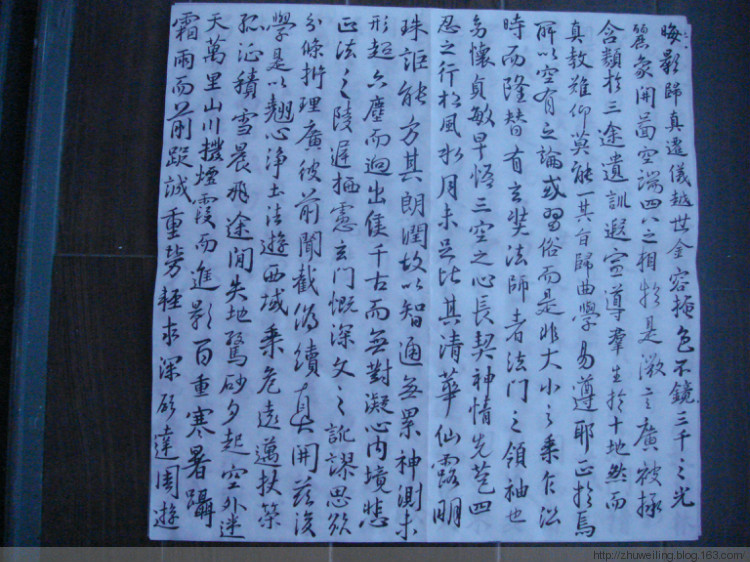 晦影歸真遷儀越世金容掩色不鏡三千之光
麗象開啚空端四八之相於是微言廣被拯
含類於三途遺訓遐宣導羣生於十地然而
真教難仰莫能一其旨歸曲學易遵耶正於焉
所以空有之論或習俗而是非大小之乘乍沿
時而隆替有玄奘法師者法門之領袖也
幼懷貞敏早悟三空之心長契神情先苞四
忍之行松風水月未足比其清華仙露明
珠詎能方其朗潤故以智通無累神測未
形超六塵而迥出隻千古而無對凝心内境悲
正法之陵遲栖慮玄門慨深文之訛謬思欲
分條析理廣彼前聞截偽續真開茲後
學是以翹心淨土法遊西域乘危遠邁杖策
孤征積雪晨飛途間失地驚砂夕起空外迷
天萬里山川撥煙霞而進影百重寒暑躡
霜雨而前蹤誠重勞輕求深願達周遊
http://zhuweiling.blog.163.com/